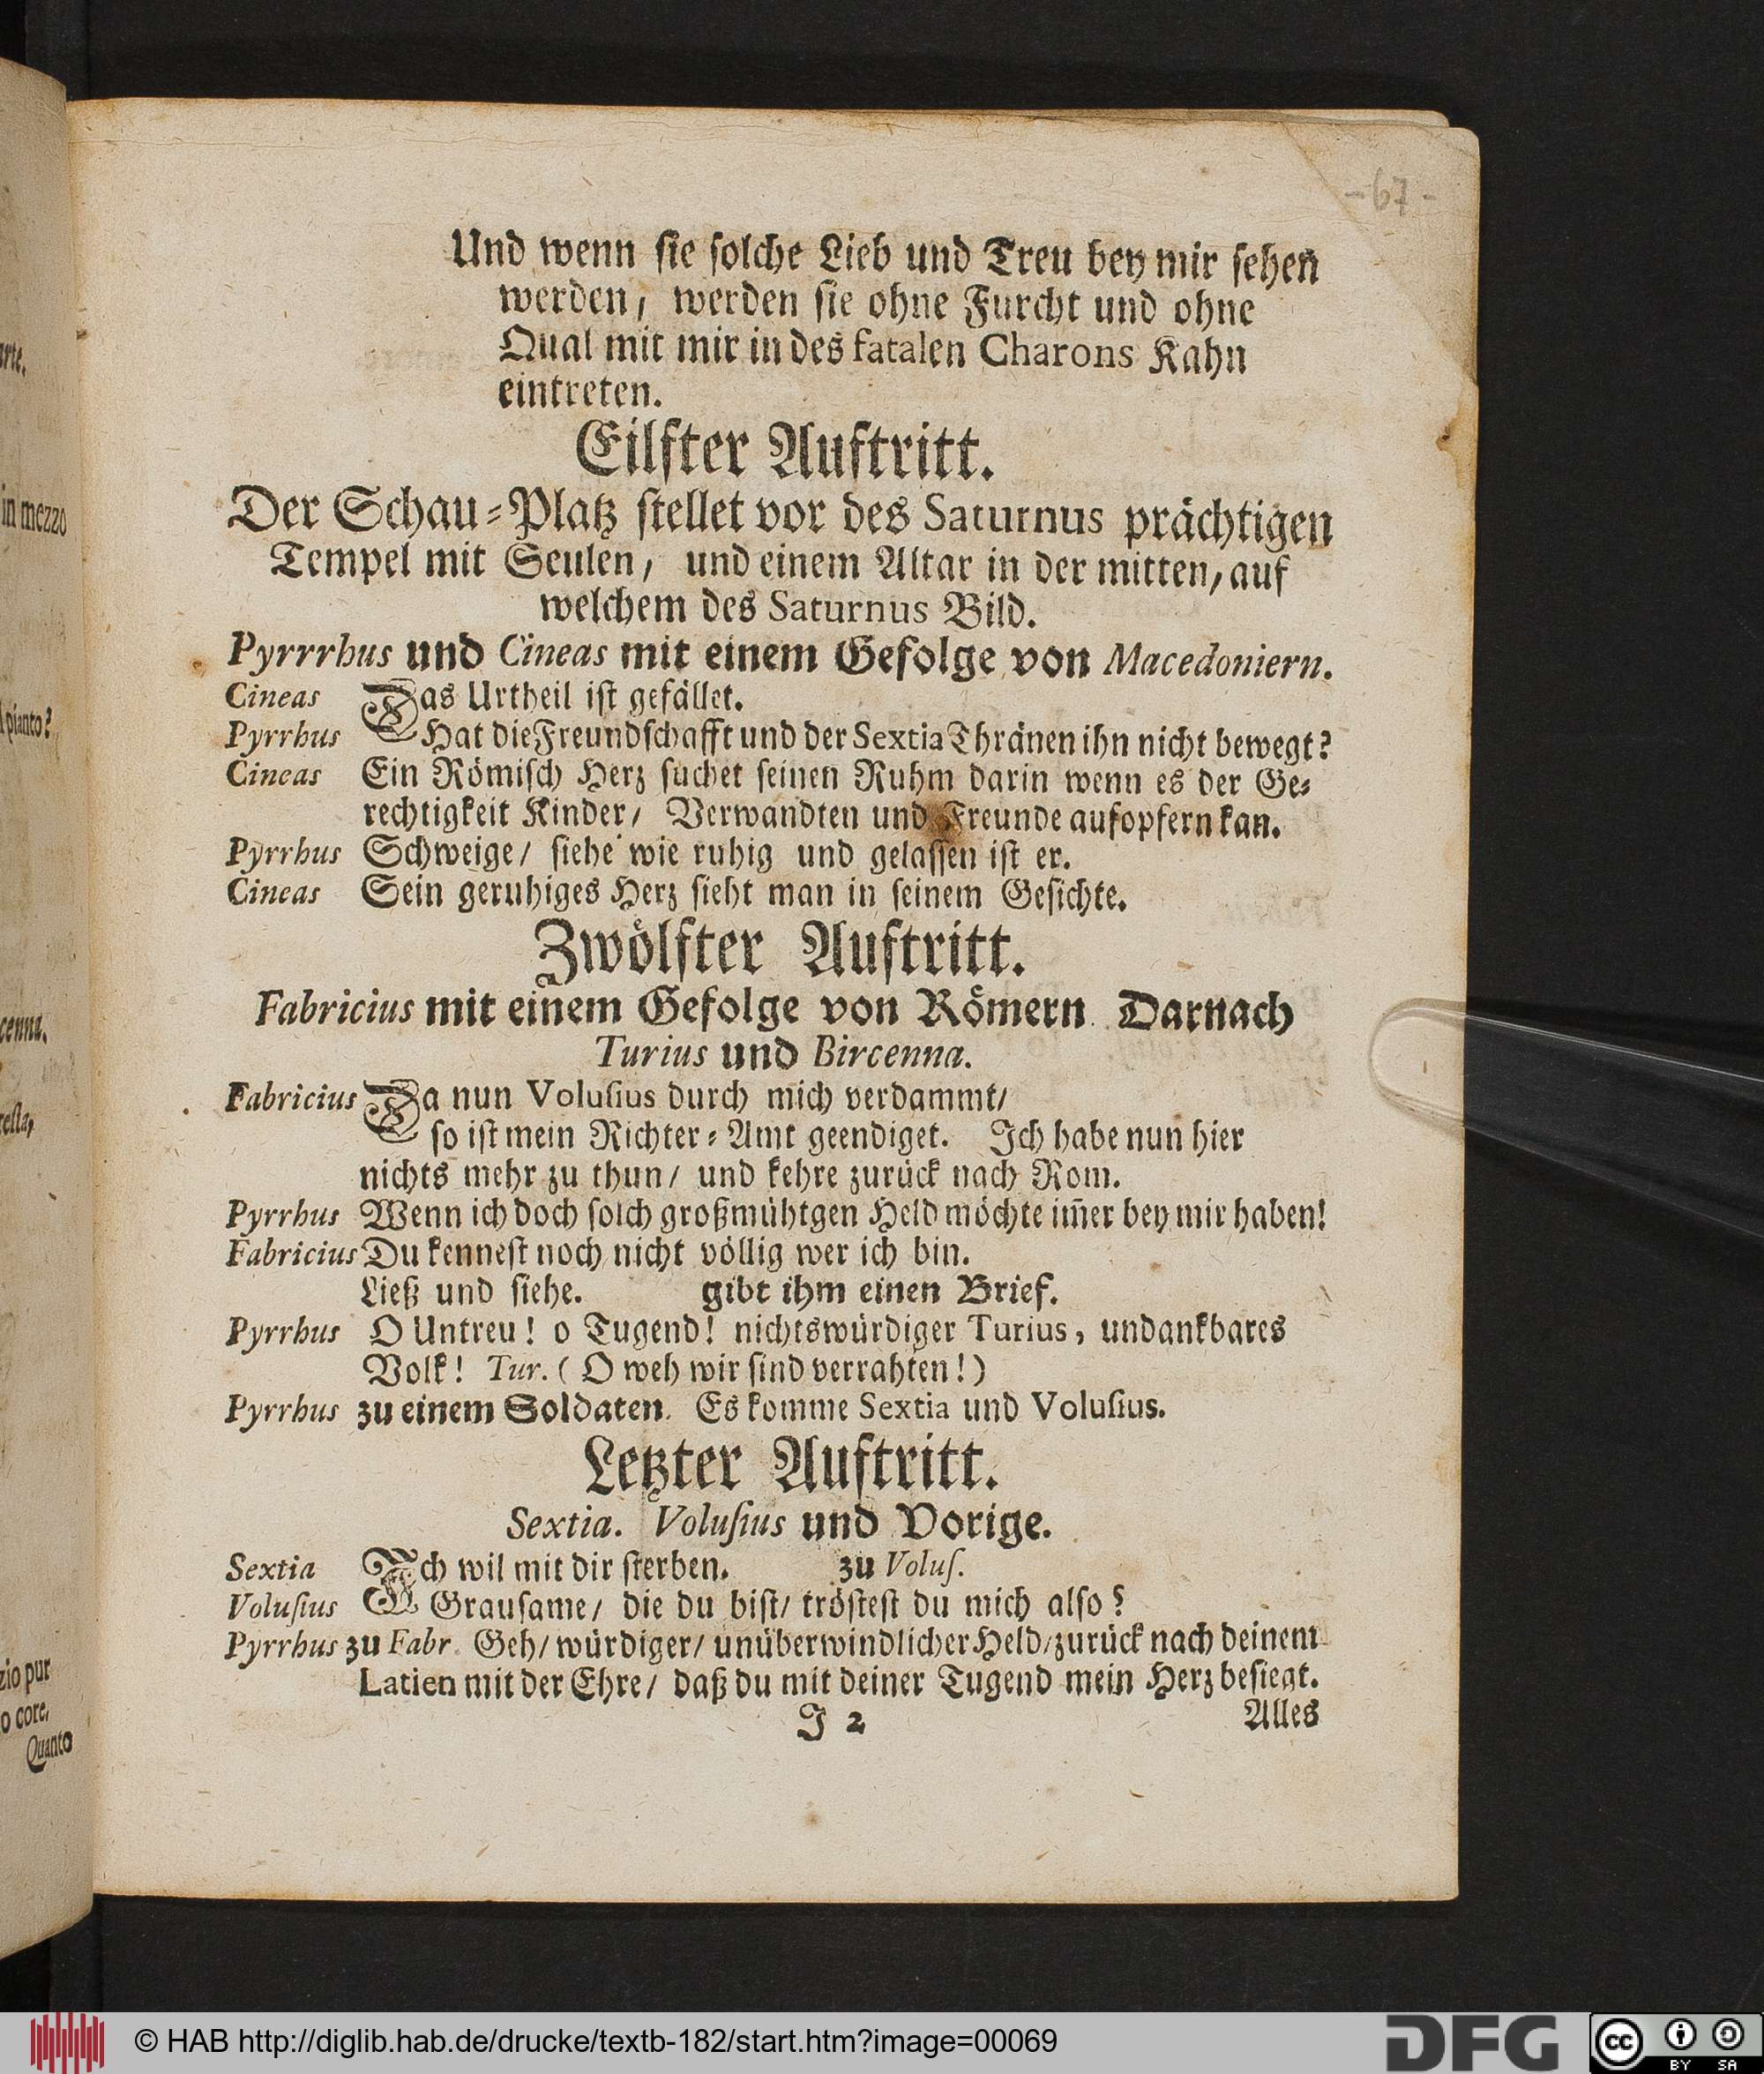 -67-
Und wenn sie solche Lieb und Treu bey mir sehen
werden, werden sie ohne Furcht und ohne
Qual mit mir in des fatalen Charons Kahn
eintreten.
Eilfter Auftritt.
Der Schau-Platz stellet vor des Saturnus prächtigen
Tempel mit Seulen, und einem Altar in der mitten, auf
welchem des Saturnus Bild.
Pyrrrhus und Cineas mit einem Gefolge von Macedoniern.
Cineas Das Urtheil ist gefället.
Pyrrhus Hat die Freundschafft und der Sextia Thränen ihn nicht bewegt?
Cineas Ein Römisch Herz suchet seinen Ruhm darin wenn es der Ge-
rechtigkeit Kinder/ Verwandten und Freunde aufopfern kan.
Pyrrhus Schweige/ siehe wie ruhig und gelassen ist er.
Cineas Sein geruhiges Herz sieht man in seinem Gesichte.
Zwölfter Auftritt.
Fabricius mit einem Gefolge von Römern. Darnach
Turius und Bircenna.
Fabricius Da nun Volusius durch mich verdammt/
so ist mein Richter-Amt geendiget. Ich habe nun hier
nichts mehr zu thun/ und kehre zurück nach Rom.
Pyrrhus Wenn ich doch solch großmühtgen Held möchte im̃er bey mir haben!
Fabricius Du kennest noch nicht völlig wer ich bin.
Ließ und siehe. gibt ihm einen Brief.
Pyrrhus O Untreu! o Tugend! nichtswürdiger Turius, undankbares
Volk! Tur. (O weh wir sind verrahten!)
Pyrrhus zu einem Soldaten. Es komme Sextia und Volusius.
Letzter Auftritt.
Sextia. Volusius und Vorige.
Sextia Ich wil mit dir sterben. zu Volus.
Volusius Grausame/ die du bist/ tröstest du mich also?
Pyrrhus zu Fabr. Geh/ würdiger/ unüberwindlicher Held/ zurück nach deinem
Latien mit der Ehre/ daß du mit deiner Tugend mein Herz besiegt.
J 2 Alles
in mezzo
pianto?
cenna.
resta,
zio pur
o core,
Quanto
© HAB http://diglib.hab.de/drucke/textb-182/start.htm?image=00069
DFG
cc BY SA